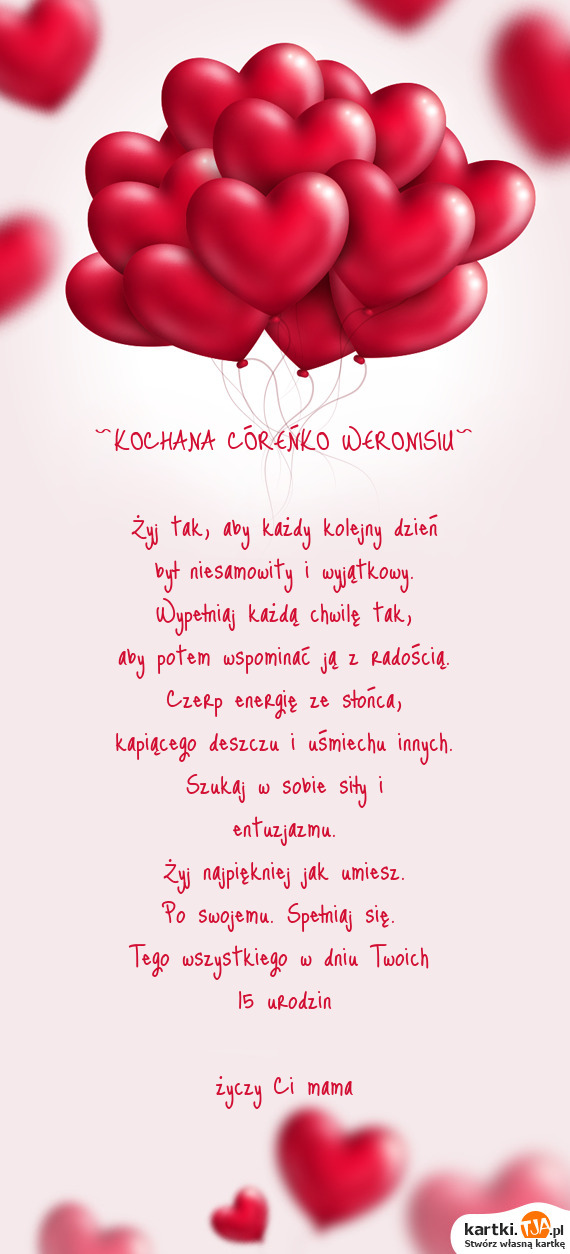 ~KOCHANA CÓREŃKO WERONISIU~
Żyj tak, aby każdy kolejny dzień
był niesamowity i wyjątkowy.
Wypełniaj każdą chwilę tak,
aby potem wspominać ją z radością.
Czerp energię ze słońca,
kapiącego deszczu i uśmiechu innych.
Szukaj w sobie siły i
entuzjazmu.
Żyj najpiękniej jak umiesz.
Po swojemu. Spełniaj się.
Tego wszystkiego w dniu Twoich
15 urodzin
życzy Ci mama
kartki.TJA.pl
Stwórz własną kartkę